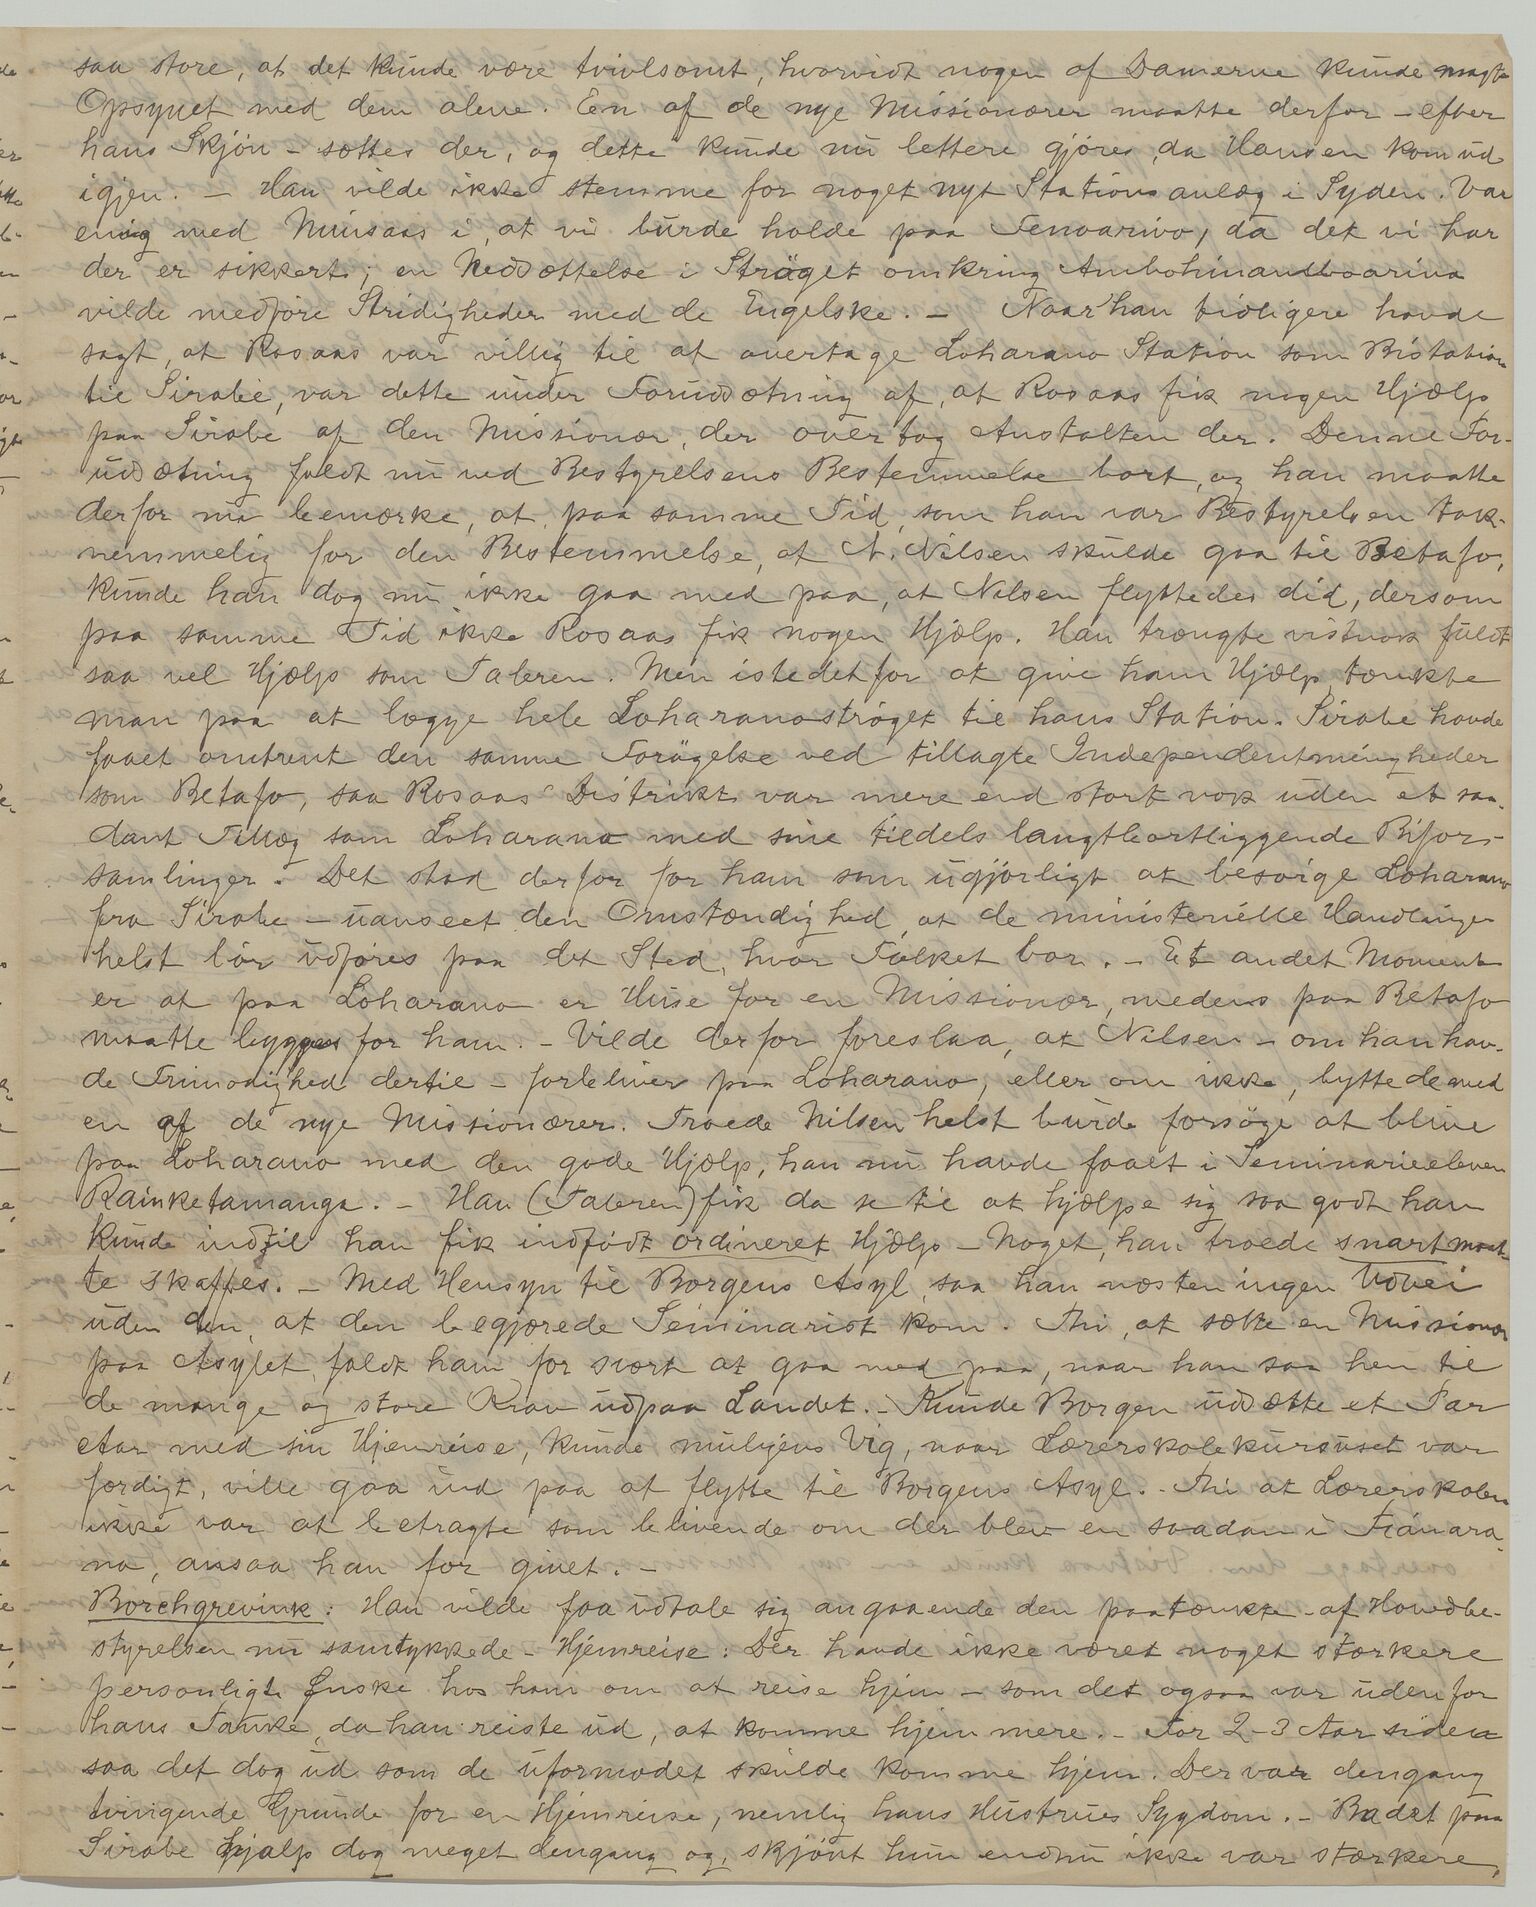 saa store, at det kunde være tvivlsomt, hvorvidt nogen af Damerne kunde magte
Opsynet med dem alene. Een af de nye Missionærer maatte derfor – efter
hans Skjøn – sættes der, og dette kunde nu lettere gjøres, da Hansen kom ud
igjen. – Han vilde ikke stemme for noget nyt Stationsanlæg i Syden. Var
enig med Minsaas i, at vi burde holde paa Fenoarivo, da det vi har
der er sikkert; en Nedsættelse i Strøget omkring Ambohimandroarina
vilde medføre Stridigheder med de Engelske. – Naar han tidligere havde
sagt, at Rosaas var villig til at overtage Loharano Station som Bistation
til Sirabe, var dette under Forudsætning af, at Rosaas fik nogen Hjælp
paa Sirabe af den Missionær, der overtog Anstalten der. Denne For-
udsætning faldt nu ved Bestyrelsens Bestemmelse bort, og han maatte
derfor nu bemærke, at paa samme Tid, som han var Bestyrelsen tak-
nemmelig for den Bestemmelse, at N. Nilsen skulde gaa til Betafo,
kunde han dog nu ikke gaa med paa, at Nilsen flyttedes did, dersom
paa samme Tid ikke Rosaas fik nogen Hjælp. Han trængte vistnok fuldt
saa vel Hjælp som Taleren. Men istedetfor at give ham Hjælp tænkte
man paa at lægge hele Loharanostrøget til hans Station. Sirabe havde
faaet omtrent den samme Forøgelse ved tillagte Independentmenigheder
som Betafo, saa Rosaas' Distrikt var mere end stort nok uden et saa-
dant Tillæg som Loharano med sine tildels langtbortliggende Bifor-
samlinger. Det stod derfor for ham som ugjørligt at besørge Loharano
fra Sirabe – uanseet den Omstændighed, at de ministerielle Handlinger
helst bør udføres paa det Sted, hvor Folket bor. – Et andet Moment
er at paa Loharano er Huse for en Missionær, medens paa Betafo
maatte bygges for ham. – Vilde derfor foreslaa, at Nilsen – om han hav-
de Frimodighed dertil – forbliver paa Loharano, eller om ikke, byttede med
en af de nye Missionærer. Troede Nilsen helst burde forsøge at blive
paa Loharano med den gode Hjælp, han nu havde faaet i Seminarieeleven
Rainketamanga. – Han (Taleren) fik da se til at hjælpe sig saa godt han
kunde indtil han fik indfødt ordineret Hjælp – Noget, han troede snart maat-
te skaffes. – Med Hensyn til Borgens Asyl, saa han næsten ingen Udvei
uden den, at den begjærede Seminarist kom. Thi, at sætte en Missionær
paa Asylet, faldt ham for svært at gaa med paa, naar han saa hen til
de mange og store Krav udpaa Landet. – Kunde Borgen udsætte et Par
Aar med sin Hjemreise, kunde muligens Vig, naar Lærerskolekursuset var
færdigt, ville gaa ind paa at flytte til Borgens Asyl. – Thi at Lærerskolen
ikke var at betragte som blivende om der blev en saadan i Fianara-
na, ansaa han for givet. –
Borchgrevink: Han vilde faa udtale sig angaaende den paatænkte – af Hovedbe-
styrelsen nu samtykkede – Hjemreise: Der havde ikke været noget stærkere
personligt Ønske hos ham om at reise hjem – som det ogsaa var udenfor
hans Tanke, da han reiste ud, at komme hjem mere. – For 2–3 Aar siden
saa det dog ud som de uformodet skulde komme hjem. Der var dengang
tvingende Grunde for en Hjemreise, nemlig hans Hustrues Sygdom. – Badet paa
Sirabe hjalp dog meget dengang og, skjønt hun endnu ikke var stærkere,